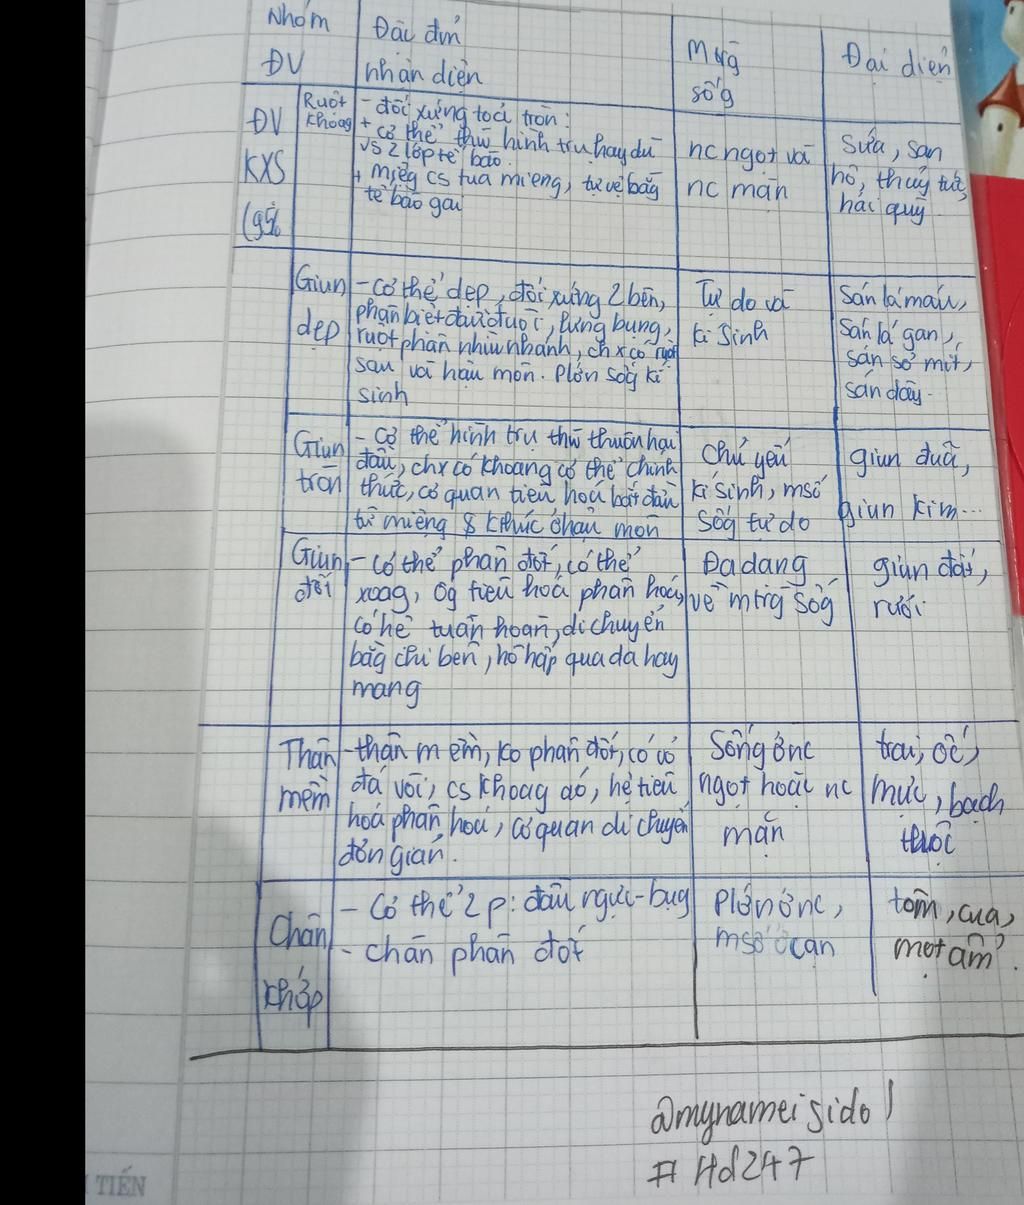 Nhóm ĐV
Đặc đ'
nhận diện
Mtrg sống
Đại diện
ĐV KXS
Ruột khoang
- đối xứng toả tròn:
+ cơ thể thường hình trụ hay dù
vs 2 lớp tế bào.
+ miệg cs tua miệng, tự vệ bằg
tế bào gai
nc ngọt và
nc mặn
Sứa, san
hô, thuỷ tức,
hải quỳ
Giun dẹp
- Cơ thể dẹp, đối xứng 2 bên,
phân biệt đầu đuôi, lưng bụng,
ruột phân nhìu nhánh, chx có ruột
sau và hậu môn. Plớn sốg kí
sinh
Tự do và
kí sinh
Sán lá máu,
Sán lá gan,
sán sơ mít,
sán dây.
Giun tròn
- Cơ thể hình trụ thườ thuôn hai
đầu, chx có khoang cơ thể chính
thức, cơ quan tiêu hoá bắt đầu
từ miệng & kthúc ở hậu môn
Chủ yếu
kí sinh, msố
sốg tự do
giun đũa,
giun kim...
Giun đốt
- Cơ thể phân đốt, có thể
xoag, ốg tiêu hoá phân hoá,
có hệ tuần hoàn, di chuyển
bằg chi bên, hô hấp qua da hay
mang
Đa dạng
về mtrg sốg
giun đất,
rươi.
Thân mềm
- thân mềm, ko phân đốt, có vỏ
đá vôi, cs khoag áo, hệ tiêu
hoá phân hoá, cơ quan di chuyển
đơn giản.
Sống ở nc
ngọt hoặc nc
mặn
trai, ốc,
mực, bạch
tuộc
Chân khớp
- Cơ thể 2 p: đầu ngực-bụg
- chân phân đốt
Plớn ở nc,
msố ở cạn
tôm, cua,
mọt ẩm.
@mynameisido
# Hd247
TIẾN